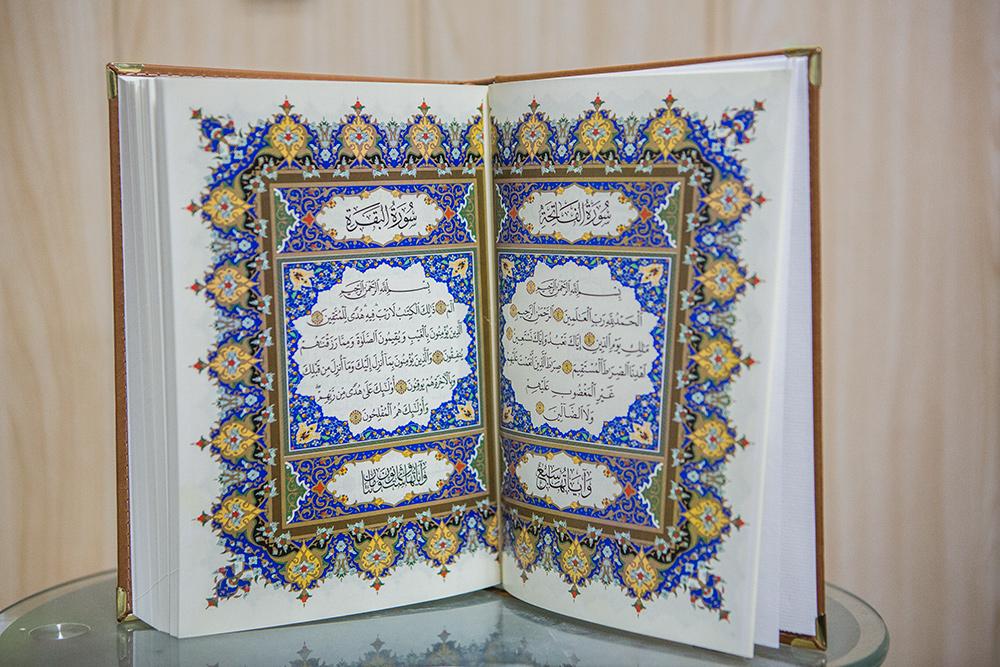 سُورَةُ الْفَاتِحَةِ
بِسْمِ اللَّهِ الرَّحْمَٰنِ الرَّحِيمِ ١
الْحَمْدُ لِلَّهِ رَبِّ الْعَالَمِينَ ٢ الرَّحْمَٰنِ الرَّحِيمِ ٣
مَالِكِ يَوْمِ الدِّينِ ٤ إِيَّاكَ نَعْبُدُ وَإِيَّاكَ نَسْتَعِينُ ٥
اهْدِنَا الصِّرَاطَ الْمُسْتَقِيمَ ٦ صِرَاطَ الَّذِينَ أَنْعَمْتَ عَلَيْهِمْ
غَيْرِ الْمَغْضُوبِ عَلَيْهِمْ
وَلَا الضَّالِّينَ ٧
وَآيَاتُهَا سَبْعٌ
سُورَةُ الْبَقَرَةِ
بِسْمِ اللَّهِ الرَّحْمَٰنِ الرَّحِيمِ
الٓمٓ ١ ذَٰلِكَ الْكِتَابُ لَا رَيْبَ فِيهِ هُدًى لِلْمُتَّقِينَ ٢
الَّذِينَ يُؤْمِنُونَ بِالْغَيْبِ وَيُقِيمُونَ الصَّلَاةَ وَمِمَّا رَزَقْنَاهُمْ
يُنْفِقُونَ ٣ وَالَّذِينَ يُؤْمِنُونَ بِمَا أُنْزِلَ إِلَيْكَ وَمَا أُنْزِلَ مِنْ قَبْلِكَ
وَبِالْآخِرَةِ هُمْ يُوقِنُونَ ٤ أُولَٰئِكَ عَلَىٰ هُدًى مِنْ رَبِّهِمْ
وَأُولَٰئِكَ هُمُ الْمُفْلِحُونَ ٥
وَآيَاتُهَا